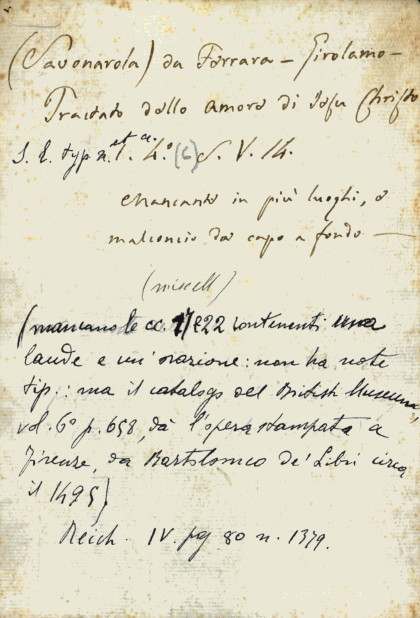 (Savonarola) da Ferrara – Girolamo –
Tractato dello amore di Iesu Christo
S. L. typ. n. et a. 4.° (6) S. V. 14.
Mancante in più luoghi, e
malconcio da capo a fondo —
(miscell)
(mancano le cc. 22 contenenti una
laude e un'orazione: non ha note
tip.: ma il catalogo del British Museum,
vol. 6° p. 658, dà l'opera stampata a
Firenze, da Bartolomeo de' Libri circa
il 1495)
Reich. IV. pg 80 n. 1379.